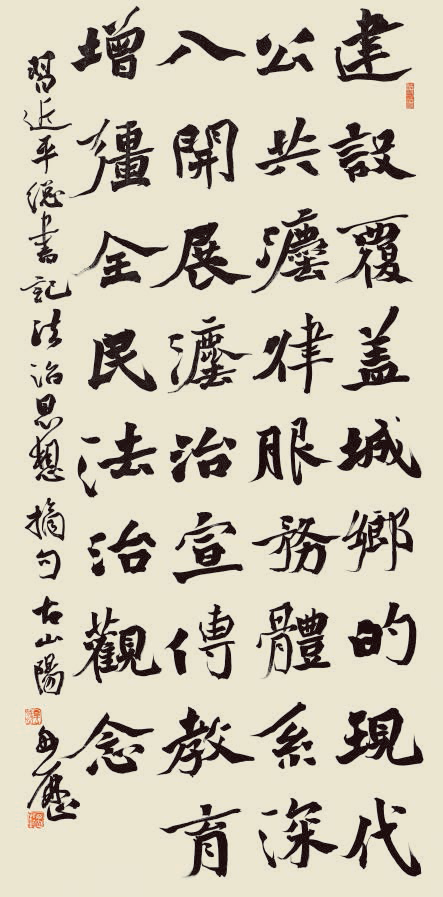 建設覆蓋城鄉的現代
公共灋律服務體系深
入開展灋治宣傳教育
增彊全民法治觀念
習近平總書記法治思想摘句古山陽